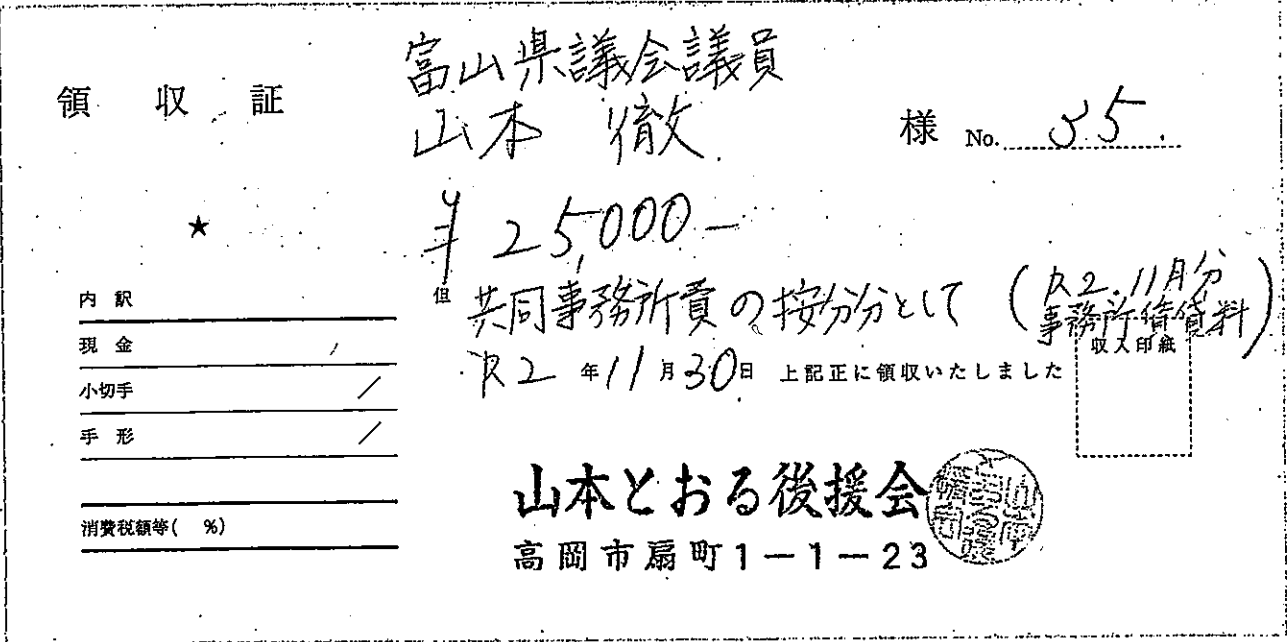 領収証
富山県議会議員
山本 徹
様 No. 35.
★
¥25,000-
但 共同事務所費の按分分として (R2.11月分
事務所賃借料)
R2年11月30日 上記正に領収いたしました
収入印紙
内訳
現金
小切手
手形
消費税額等( %)
山本とおる後援会
高岡市扇町1-1-23